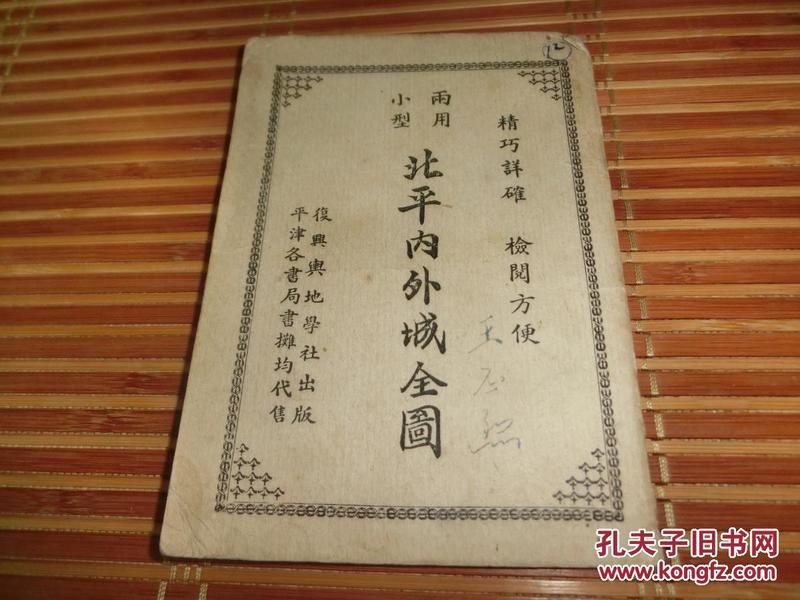 12
精巧詳確 檢閱方便
兩用
小型
北平內外城全圖
復興輿地學社出版
平津各書局書攤均代售
孔夫子旧书网
www.kongfz.com